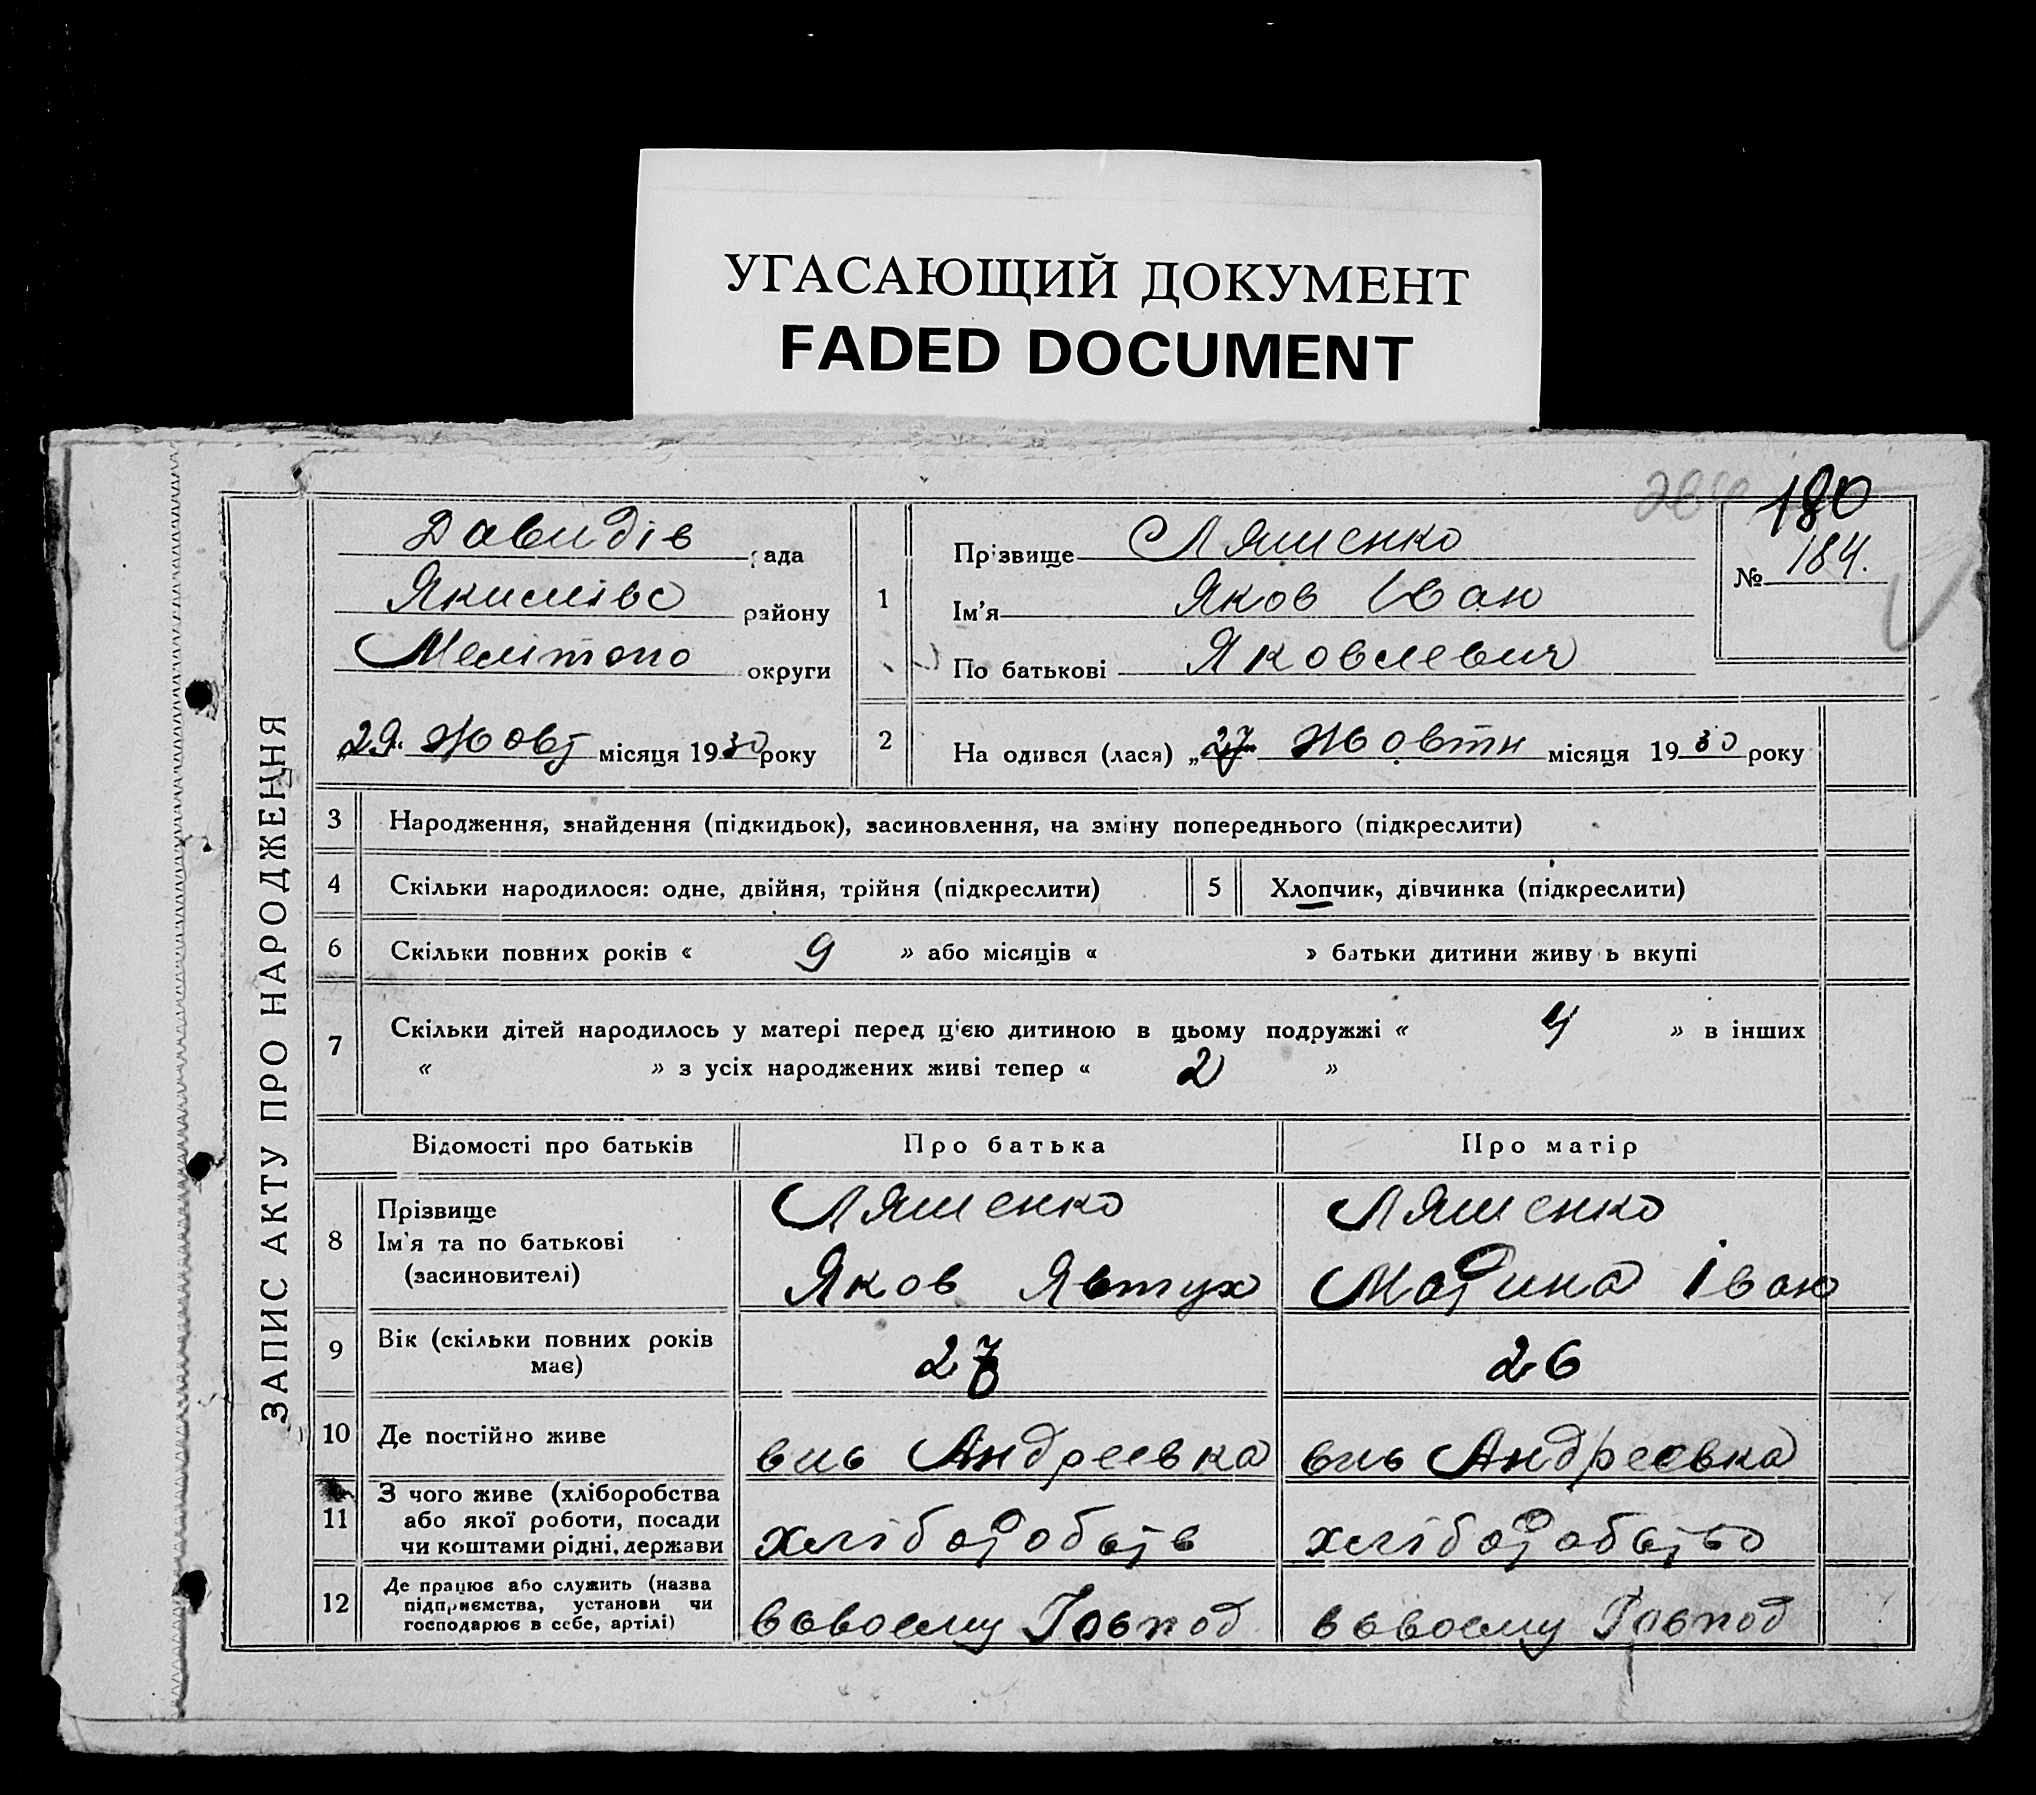 УГАСАЮЩИЙ ДОКУМЕНТ
FADED DOCUMENT
180
ЗАПИС АКТУ ПРО НАРОДЖЕННЯ
Давидів рада
Якимівс району
Меліто по округи
29 Жовт місяця 1930 року
1
Прізвище Ляшенко
Ім'я Яков Іван
По батькові Яковлевич
№ 184.
2 На одився (лася) „27 Жовтн місяця 1930 року
3 Народження, знайдення (підкидьок), засиновлення, на зміну попереднього (підкреслити)
4 Скільки народилося: одне, двійня, трійня (підкреслити)
5 Хлопчик, дівчинка (підкреслити)
6 Скільки повних років « 9 » або місяців « » батьки дитини живу ь вкупі
7 Скільки дітей народилось у матері перед цією дитиною в цьому подружжі « 4 » в інших
« » з усіх народжених живі тепер « 2 »
Відомості про батьків Про батька Про матір
8 Прізвище Ляшенко Ляшенко
Ім'я та по батькові Яков Явтух Марина Іван
(засиновителі)
9 Вік (скільки повних років має) 27 26
10 Де постійно живе Андреевка Андреевка
11 З чого живе (хліборобства
або якої роботи, посади
чи коштами рідні, держави хліборобств хліборобство
12 Де працює або служить (назва
підприємства, установи чи
господарює в себе, артілі) в своему Господ в своему Господ